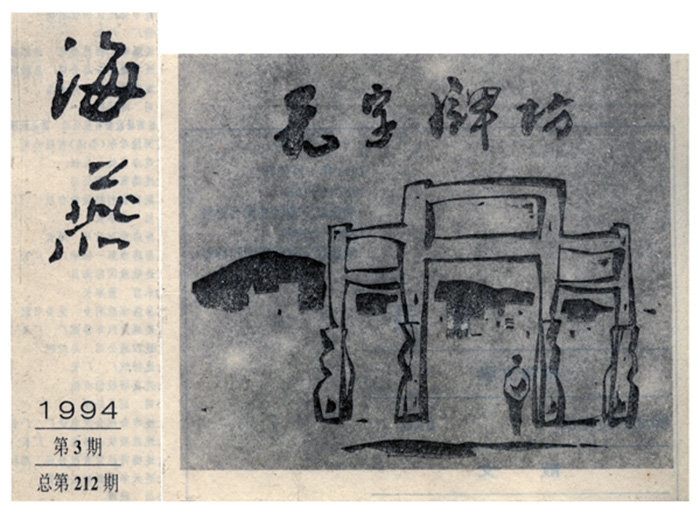 海燕
1994
第3期
总第212期
无字牌坊